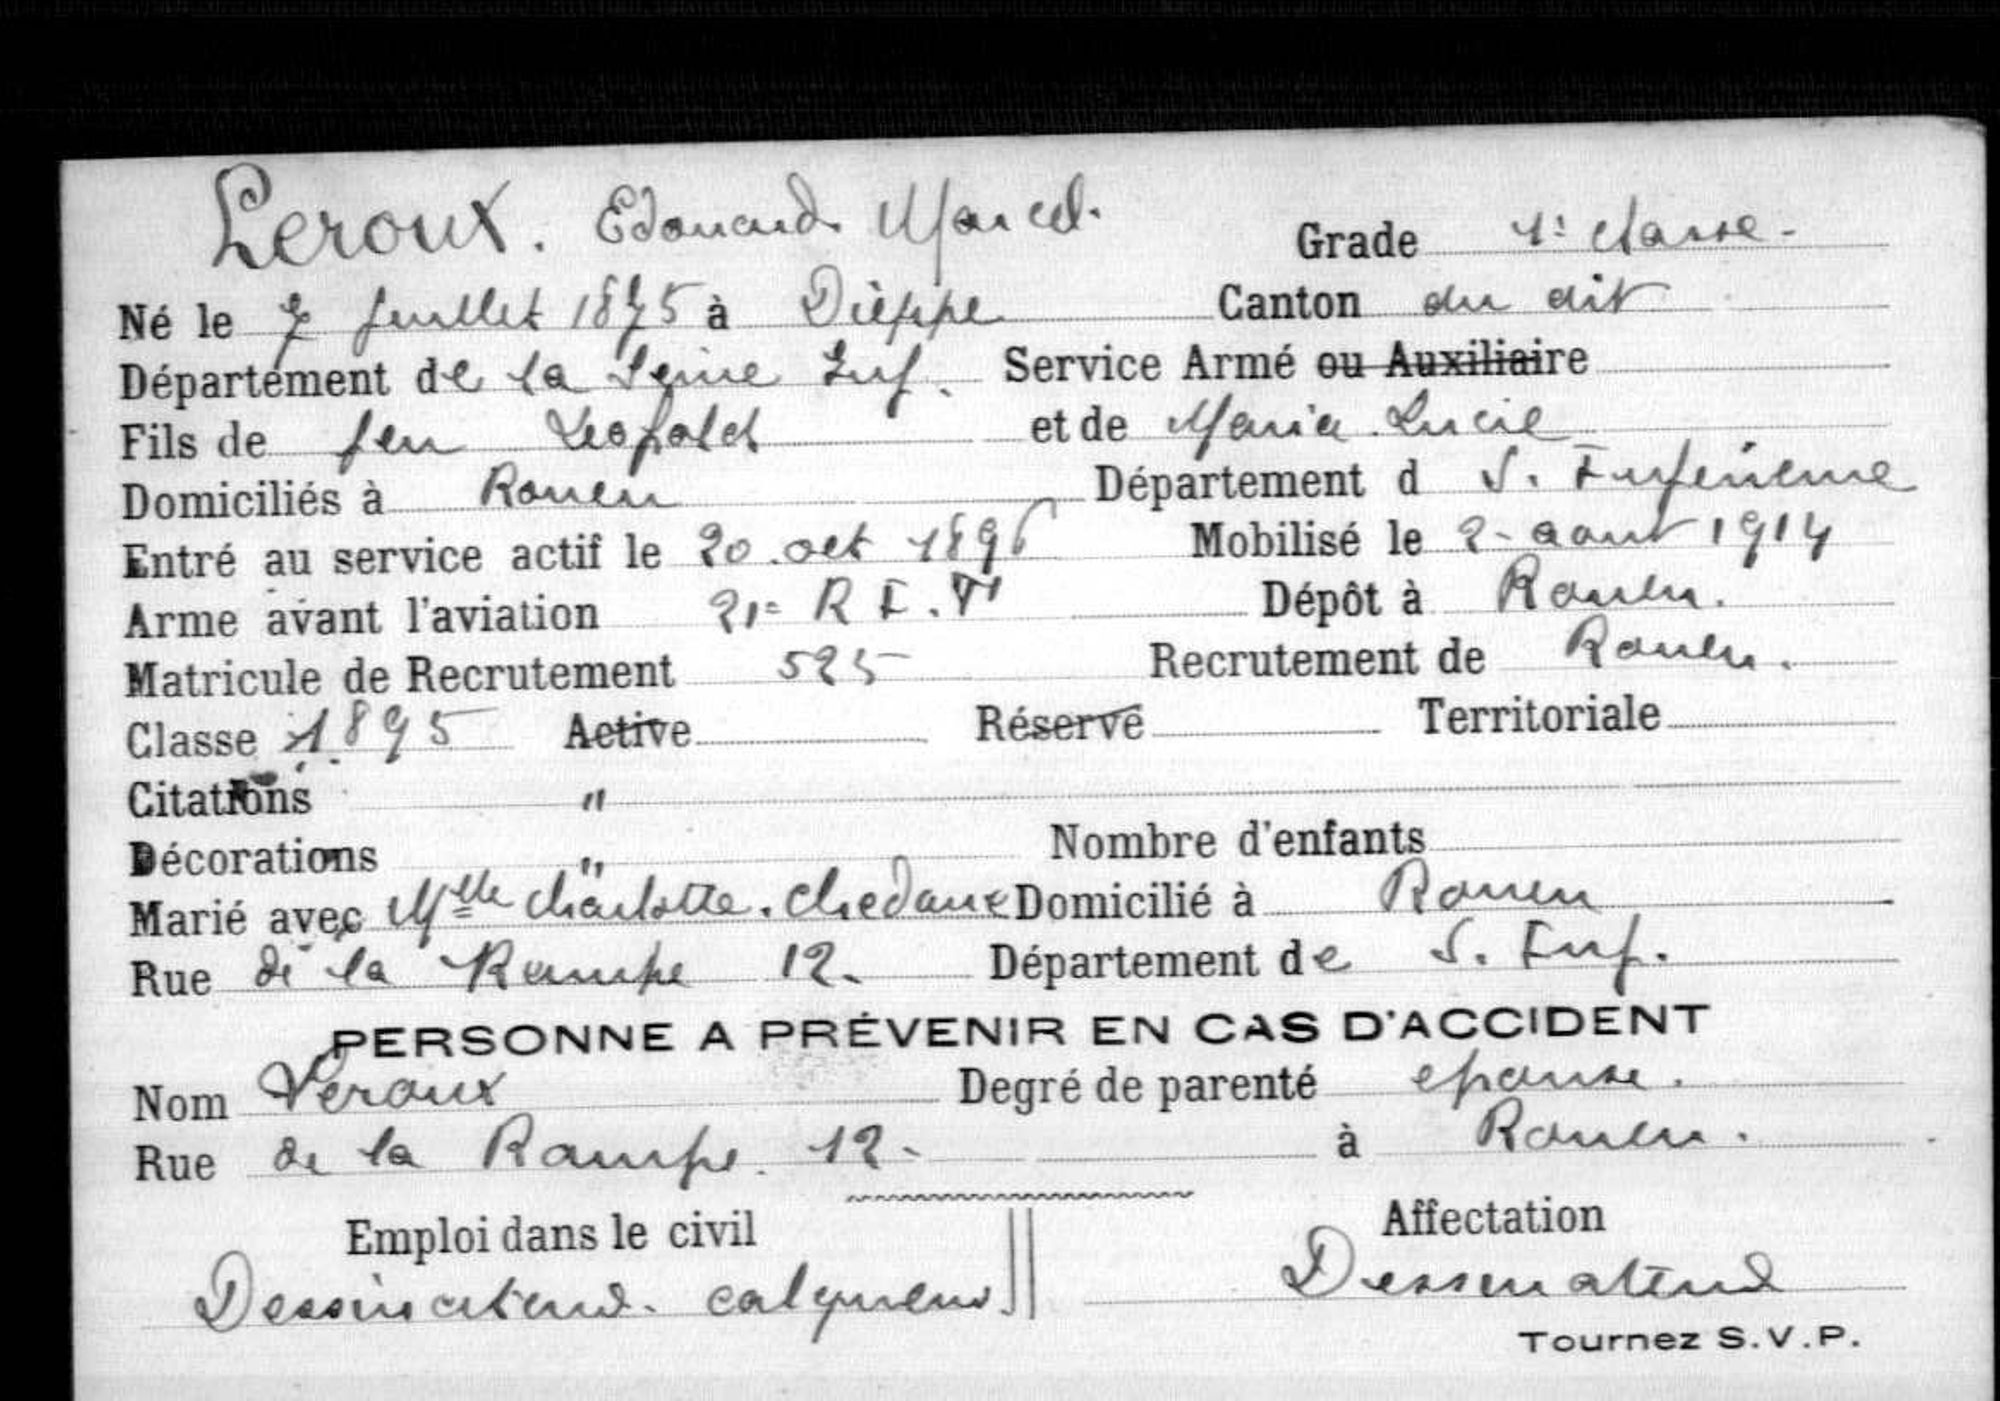 Leroux. Edouard Marcel. Grade 1e classe.
Né le 7 Juillet 1875 à Dieppe Canton du dit
Département de la Seine Inf. Service Armé ou Auxiliaire
Fils de feu Leopold et de Maria Lucie
Domiciliés à Rouen Département d S. Inferieure
Entré au service actif le 20 oct 1896 Mobilisé le 2 aout 1914
Arme avant l'aviation 21e R I. T Dépôt à Rouen.
Matricule de Recrutement 525 Recrutement de Rouen.
Classe 1895 Active Réserve Territoriale
Citations "
Décorations " Nombre d'enfants
Marié avec Melle Charlotte. Chedane Domicilié à Rouen
Rue de la Rampe 12. Département de S. Inf.
PERSONNE A PRÉVENIR EN CAS D'ACCIDENT
Nom Leroux Degré de parenté epouse.
Rue de la Rampe. 12. à Rouen.
Emploi dans le civil Affectation
Dessinateur. calqueur Dessinateur
Tournez S.V.P.